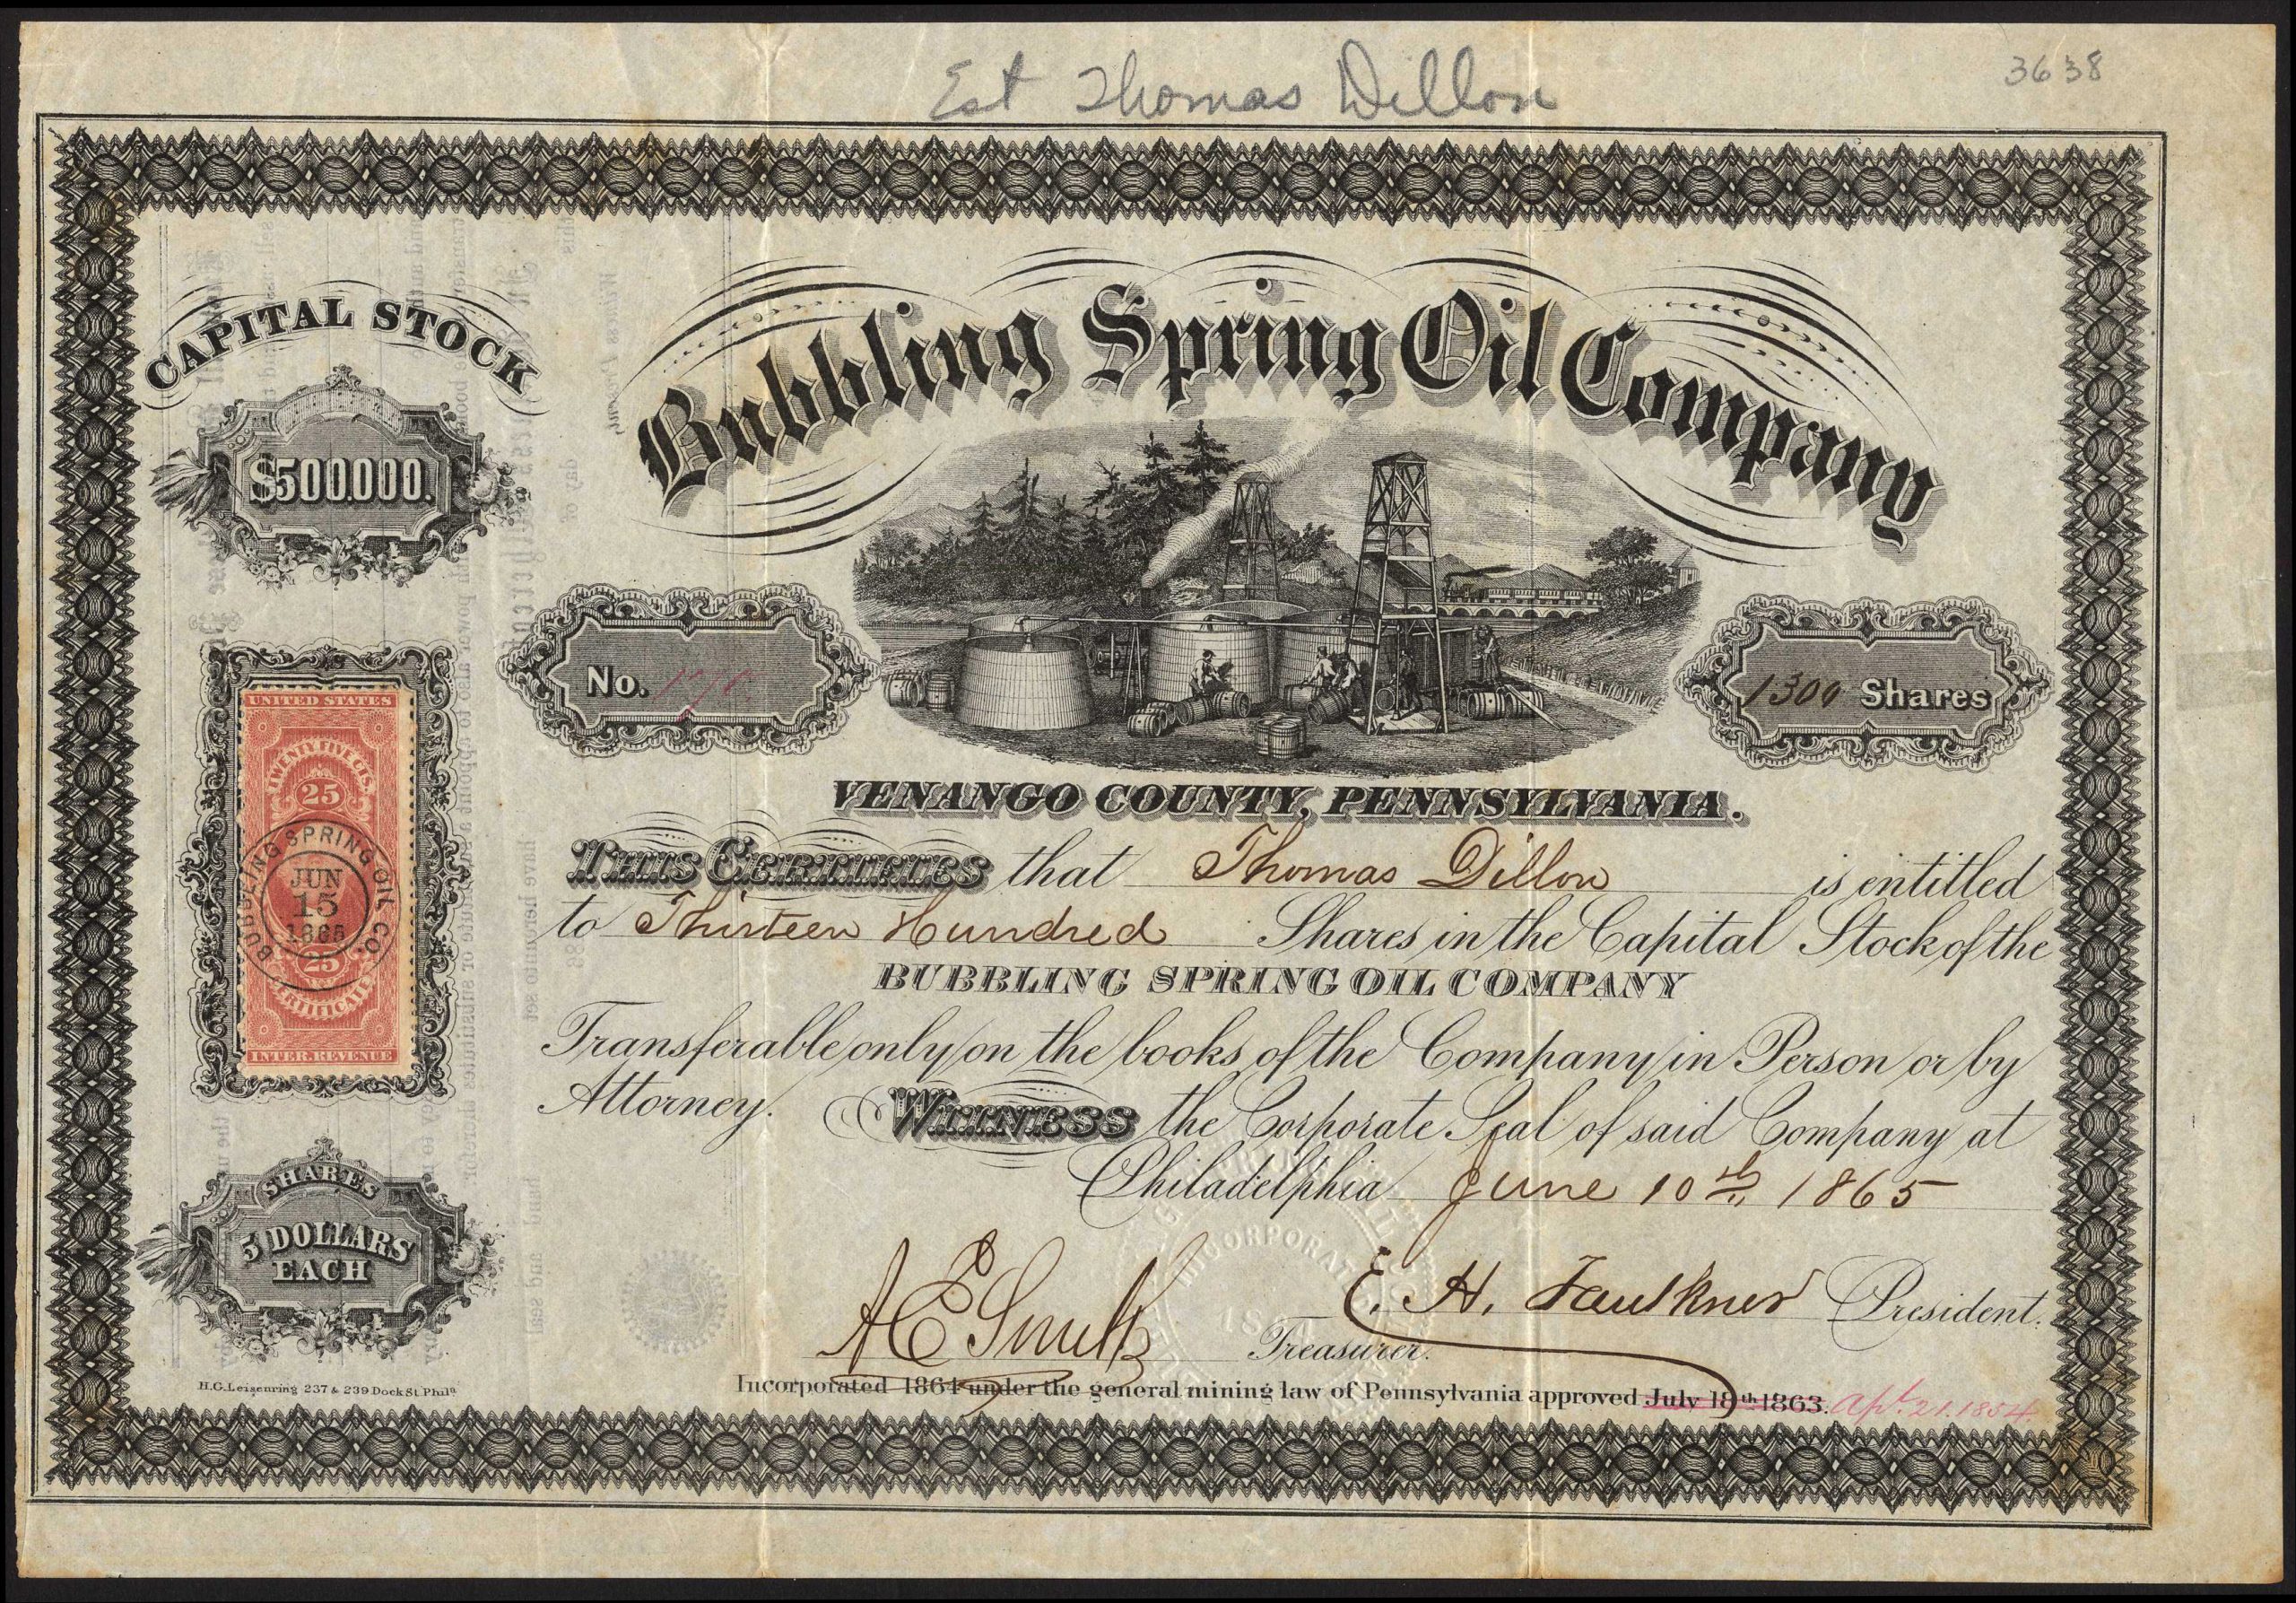 Est Thomas Dillon
3638
CAPITAL STOCK
$500.000.
Bubbling Spring Oil Company
No.
1300 Shares
VENANGO COUNTY, PENNSYLVANIA.
UNITED STATES
TWENTY FIVE CTS.
25
BUBBLING SPRING OIL CO.
JUN
15
1865
25
CERTIFICATE
INTER. REVENUE
THIS CERTIFIES that Thomas Dillon is entitled
to Thirteen Hundred Shares in the Capital Stock of the
BUBBLING SPRING OIL COMPANY
Transferable only on the books of the Company in Person or by
Attorney. WITNESS the Corporate Seal of said Company at
Philadelphia June 10th 1865
SHARES
5 DOLLARS
EACH
A E Smith Treasurer.
E. H. Faulkner President.
H.G. Leisenring 237 & 239 Dock St. Phila.
Incorporated 1864 under the general mining law of Pennsylvania approved July 18th 1863. Apl. 21. 1854.